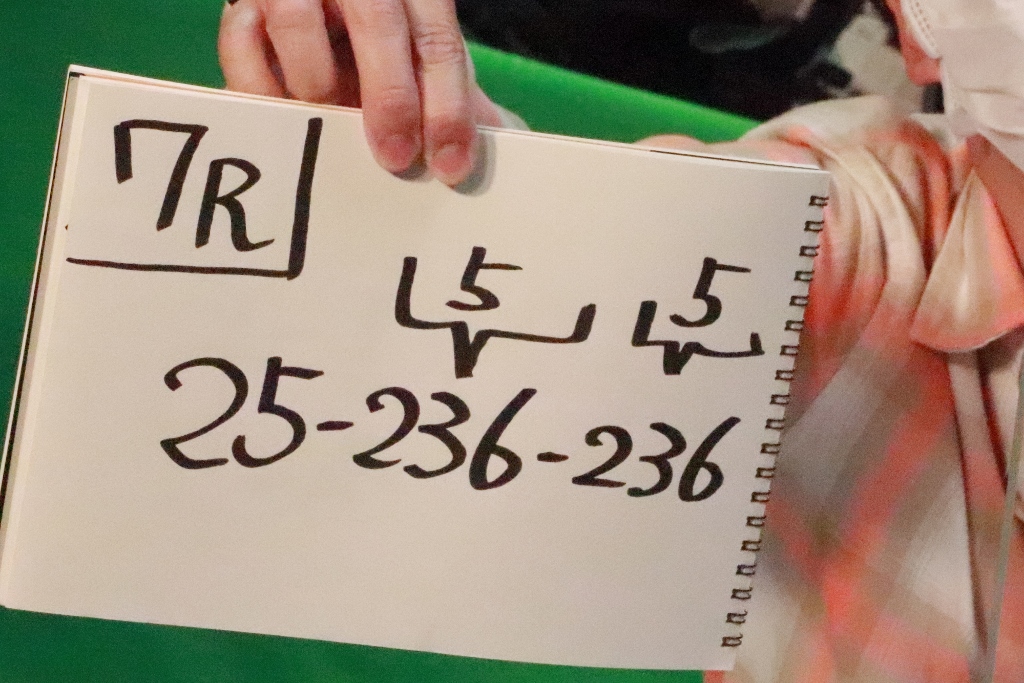 7R
5 5
25-236-236